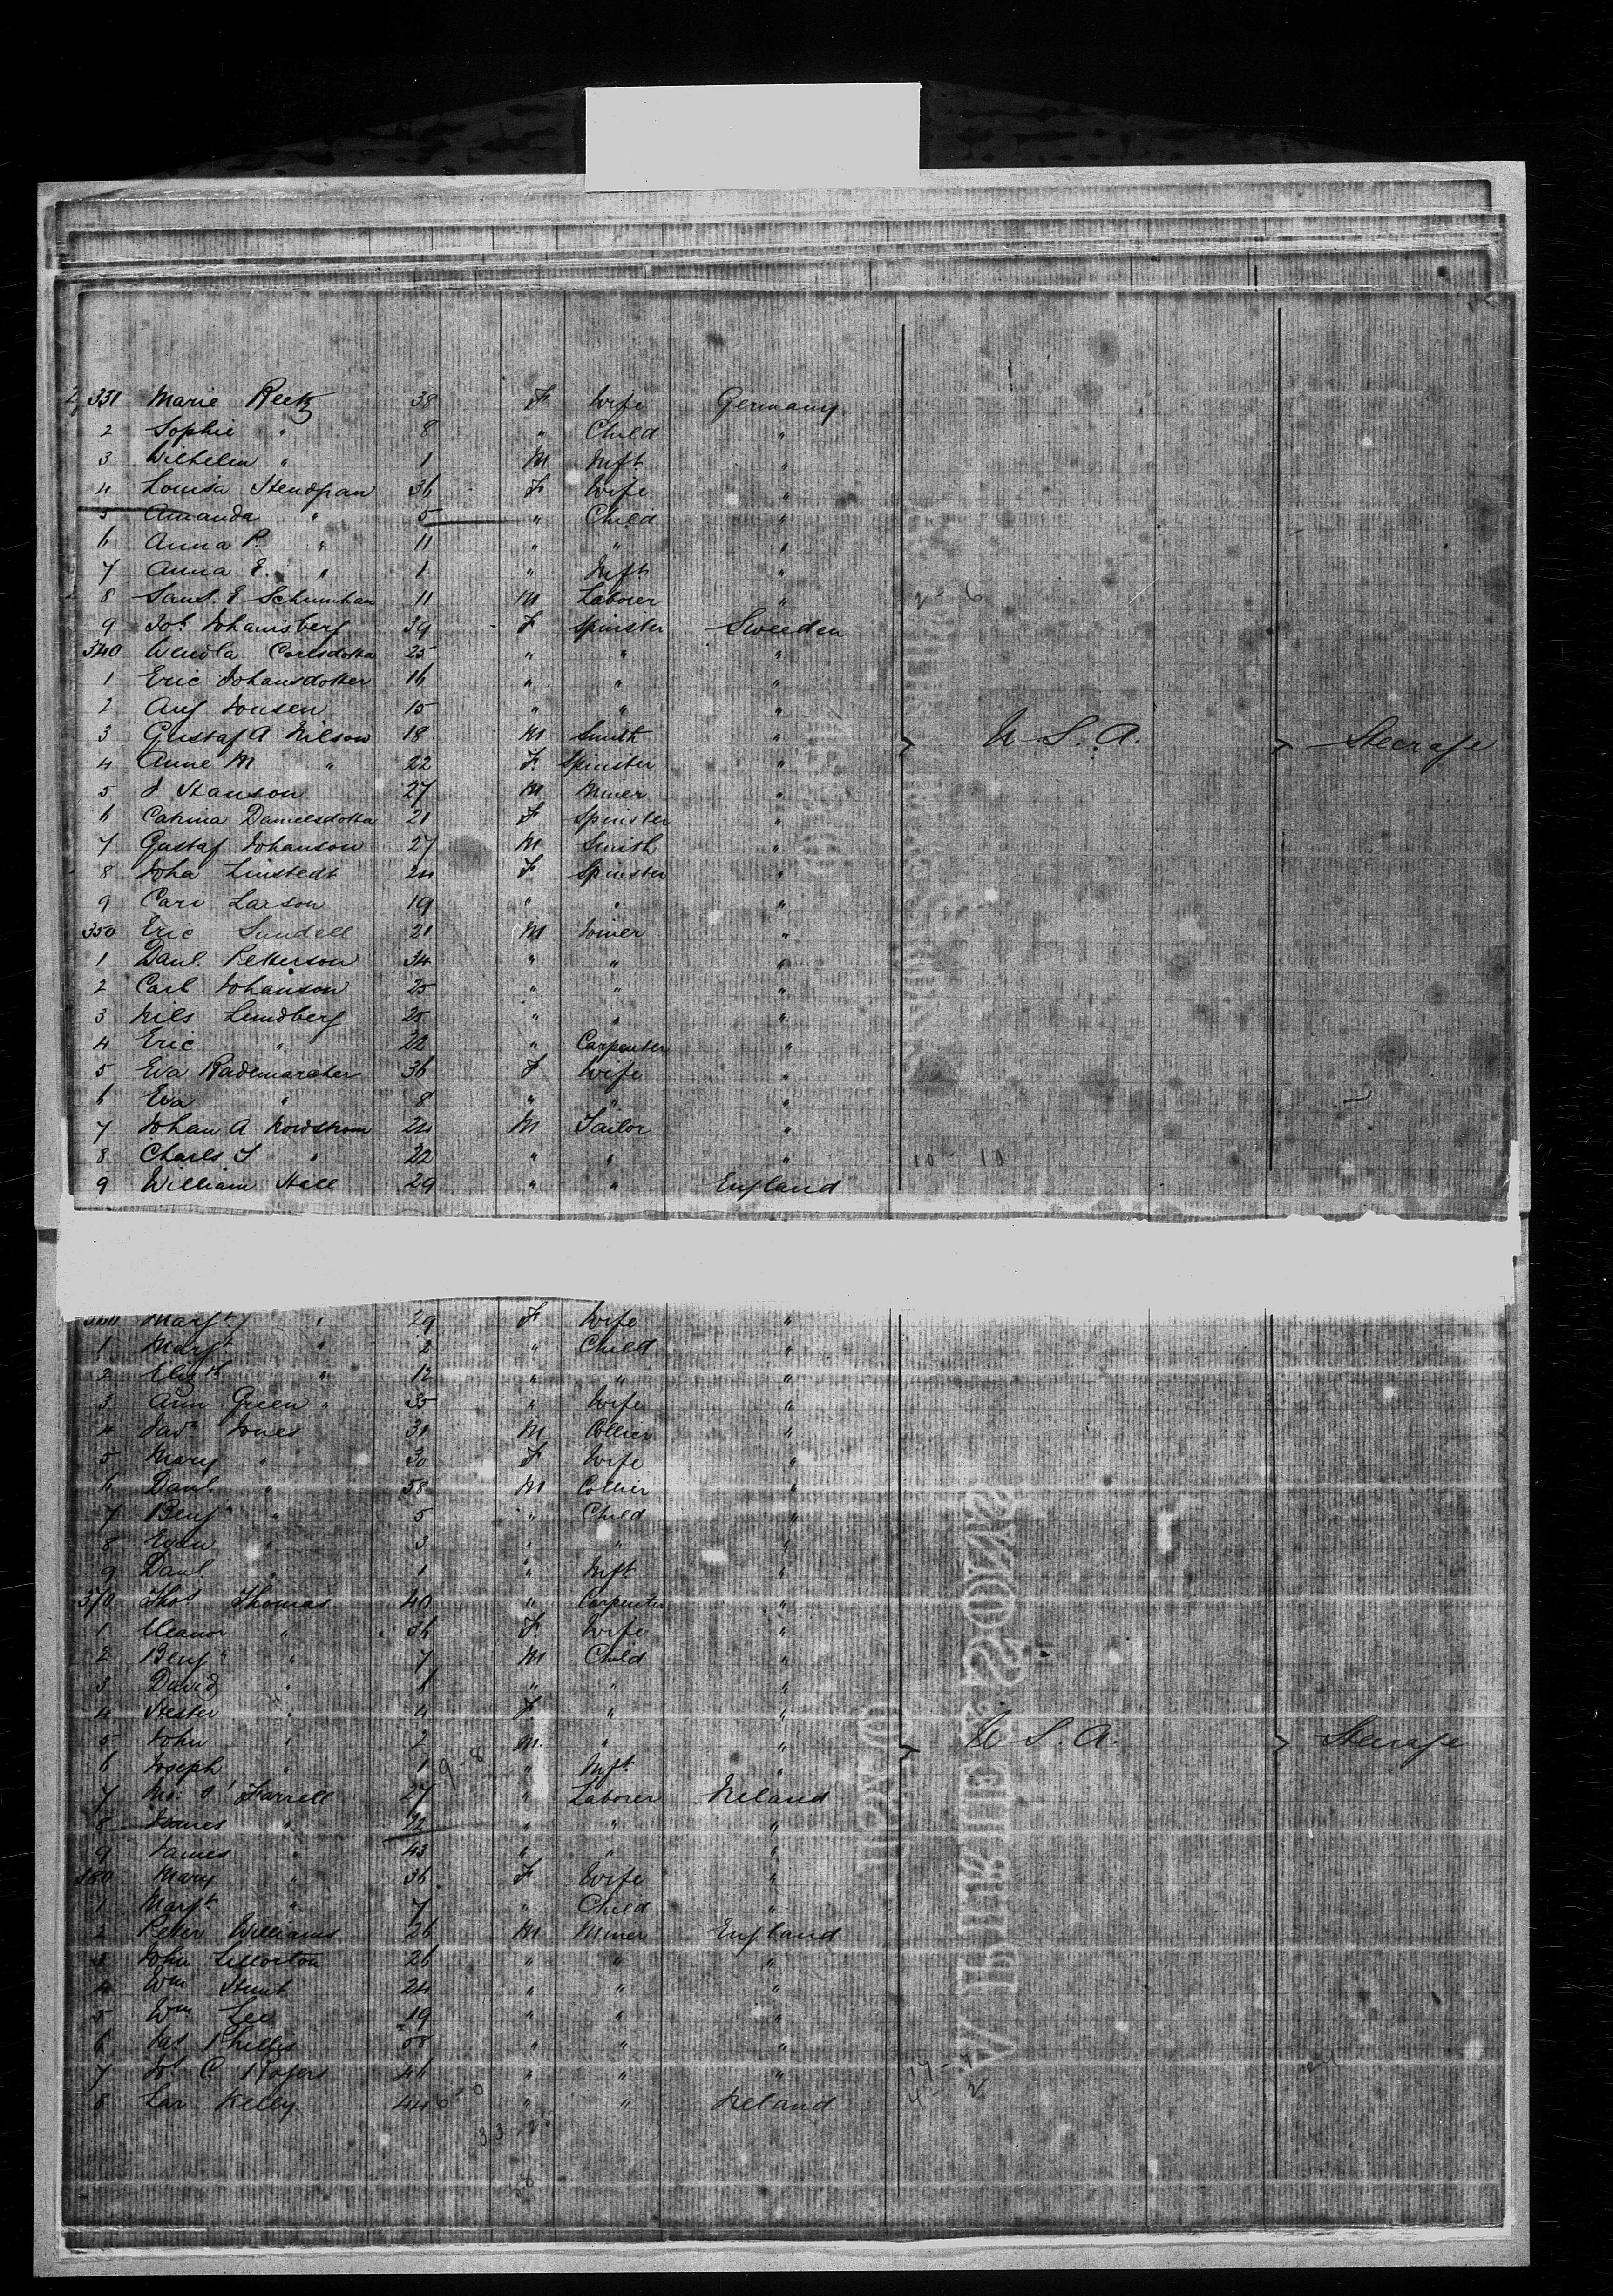 331 Marie Reetz 38 F Wife Germany
2 Sophie " 8 " Child "
3 Wilhelm " 1 M Inft "
4 Louisa Stendpan 36 F Wife "
5 Amanda " 5 " Child "
6 Anna P. " 11 " " "
7 Anna E. " 1 " Inft "
8 Saml. E Schumhan 11 M Laborer "
9 Joh. Johanisberg 39 F Spinster Sweeden
340 Wendla Carlsdotta 25 " " "
1 Eric Johansdotter 16 " " "
2 Aug Jonsen 15 " " "
3 Gustaf A Nilson 18 M Smith " U.S.A. Steerage
4 Anne M " 22 F Spinster "
5 J Stanson 27 M Miner "
6 Catrina Danielsdotta 21 F Spinster "
7 Gustaf Johanson 27 M Smith "
8 Joha Linstedt 24 F Spinster "
9 Cari Larson 19 " " "
350 Eric Sundell 21 M Joiner "
1 Danl. Petterson 34 " " "
2 Carl Johanson 25 " " "
3 Nils Lundberg 25 " " "
4 Eric " 22 " Carpenter "
5 Eva Rademaracher 36 F Wife "
6 Eva " 8 " " "
7 Johan A Nordstrom 24 M Tailor "
8 Charls J " 22 " " " 10 - 10
9 William Hall 29 " " England
Margt " 29 F Wife "
1 Margt " 2 " Child "
2 Elizth " 12 " " "
3 Ann Green " 35 " Wife "
4 Jones 31 M Collier "
5 Mary " 30 F Wife "
6 Danl. " 58 M Collier "
7 Benj " 5 " Child "
8 Evan " 3 " " "
9 Danl. " 1 " Inft "
370 Thos Thomas 40 " Carpenter "
1 Eleanor " 36 F Wife "
2 Benj " " 7 M Child "
3 David " " " "
4 Hester " 4 F " "
5 John " 2 M. " " U.S.A. Steerage
6 Joseph " 1 " Inft. "
7 O'Farrell 27 " Laborer Ireland
8 James " 22 " " "
9 James " 43 " " "
380 Mary " 36 F Wife "
1 Margt " 7 " Child "
2 Peter Williams 26 M Miner England
3 John Lillorton 26 " " "
4 Wm Hunt 24 " " "
5 Wm Lee 19 " " "
6 Jas Phillis 58 " " "
7 C Rogers 46 " " "
8 Lar Kelly 44 " " Ireland